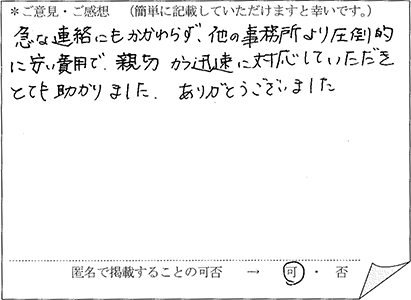 ＊ご意見・ご感想　（簡単に記載していただけますと幸いです。）
急な連絡にもかかわらず、他の事務所より圧倒的
に安い費用で、親切 かつ迅速に対応していただき
とても助かりました。 ありがとうございました
匿名で掲載することの可否　→　可 ・ 否